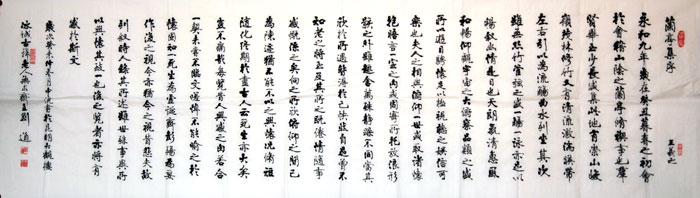 蘭亭集序
王羲之
永和九年歲在癸丑暮春之初會
於會稽山陰之蘭亭脩禊事也群
賢畢至少長咸集此地有崇山峻
領茂林修竹又有清流激湍映帶
左右引以為流觴曲水列坐其次
雖無絲竹管弦之盛一觴一詠亦足以
暢敘幽情是日也天朗氣清惠風
和暢仰觀宇宙之大俯察品類之盛
所以遊目騁懷足以極視聽之娛信可
樂也夫人之相與俯仰一世或取諸懷
抱晤言一室之內或因寄所托放浪形
骸之外雖趣舍萬殊靜躁不同當其
欣於所遇暫得於己快然自足曾不
知老之將至及其所之既惓情隨事
遷感慨係之矣向之所欣俯仰之間已
為陳迹猶不能不以之興懷況脩短
隨化終期於盡古人云死生亦大矣
豈不痛哉每覽昔人興感之由若合
一契未嘗不臨文嗟悼不能喻之於
懷固知一死生為虛誕齊彭殤為妄
作後之視今亦猶今之視昔悲夫故
列敘時人錄其所述雖世殊事異所
以興懷其致一也後之覽者亦將有
感於斯文
歲次癸未仲冬月中浣書於昆明大觀樓
古稀老人